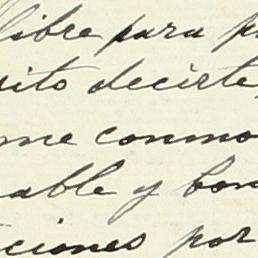 libre para p
sito decirte
me conmo
able y bon
ciones por